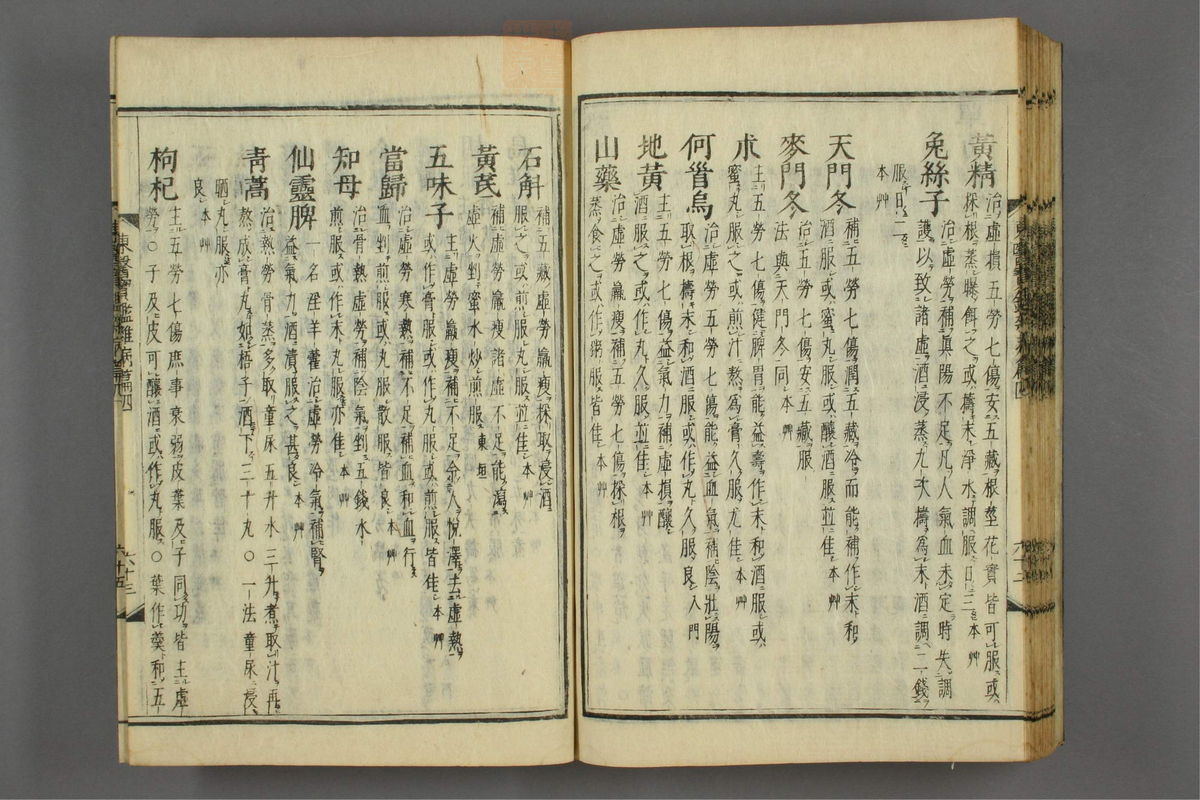 黃精
治虛損五勞七傷安五藏根莖花實皆可服或
採根蒸曝餌之或擣末淨水調服日三本艸
兔絲子
治虛勞補眞陽不足凡人氣血未定時失調
護以致諸虛酒浸蒸九次擣爲末酒調二錢
服日二
本艸
天門冬
補五勞七傷潤五藏冷而能補作末和
酒服或蜜丸服或釀酒服並佳本艸
麥門冬
治五勞七傷安五藏服
法與天門冬同本艸
朮
主五勞七傷健脾胃能益壽作末和酒服或
蜜丸服之或煎汁熬爲膏久服尤佳本艸
何首烏
治虛勞五勞七傷能益血氣補陰壯陽
取根擣末和酒服或作丸久服良入門
地黃
主五勞七傷益氣力補虛損釀
酒服或作丸久服並佳本艸
山藥
治虛勞羸瘦補五勞七傷採根
蒸食之或作粥服皆佳本艸
石斛
補五藏虛勞羸瘦採取浸酒
服之或煎服丸服並佳本艸
黃芪
補虛勞羸瘦諸虛不足能瀉
虛火剉蜜水炒煎服東垣
五味子
主虛勞羸瘦補不足令人悅澤去虛熱
或作膏服或作丸服或煎服皆佳本艸
當歸
治虛勞寒熱補不足補血和血行
血剉煎服或丸服散服皆良本艸
知母
治骨熱虛勞補陰氣剉五錢水
煎服或作末丸服亦佳本艸
仙靈脾
一名淫羊藿治虛勞冷氣補腎
益氣力酒漬服之甚良本艸
靑蒿
治熱勞骨蒸多取童尿五升水三升煮取汁再
熬成膏丸如梧子酒下三十丸○一法童尿浸
晒丸服亦
良本艸
枸杞
主五勞七傷庶事衰弱皮葉及子同功皆主虛
勞○子及皮可釀酒或作丸服○葉作羹和五
東醫寶鑑雜病篇四
六十三